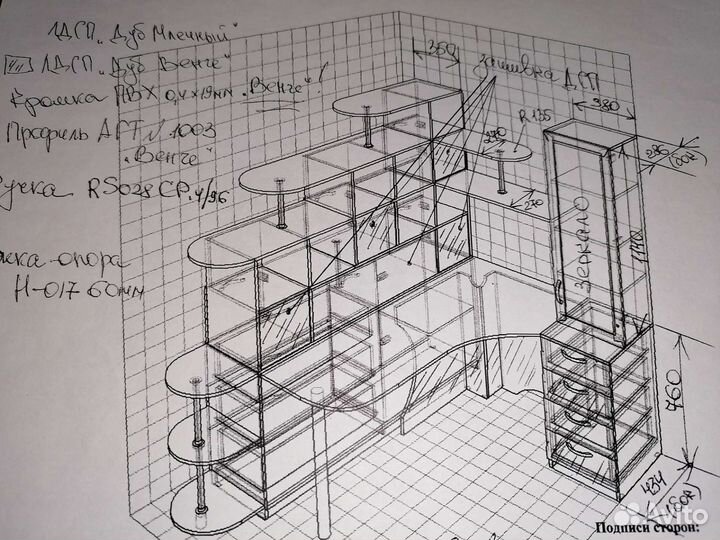 ЛДСП „Дуб Млечный"
ЛДСП „Дуб Венге"
Кромка ПВХ 0,4х19мм „Венге"!
Профиль АРТ. 1003
„Венге"
Ручка RS028CP.4/96
опора
Н-017 60мм
350
зашивка ДСП
380
R 135
270
280
(
270
зеркало
1140
760
434
(
Avito
Подписи сторон: